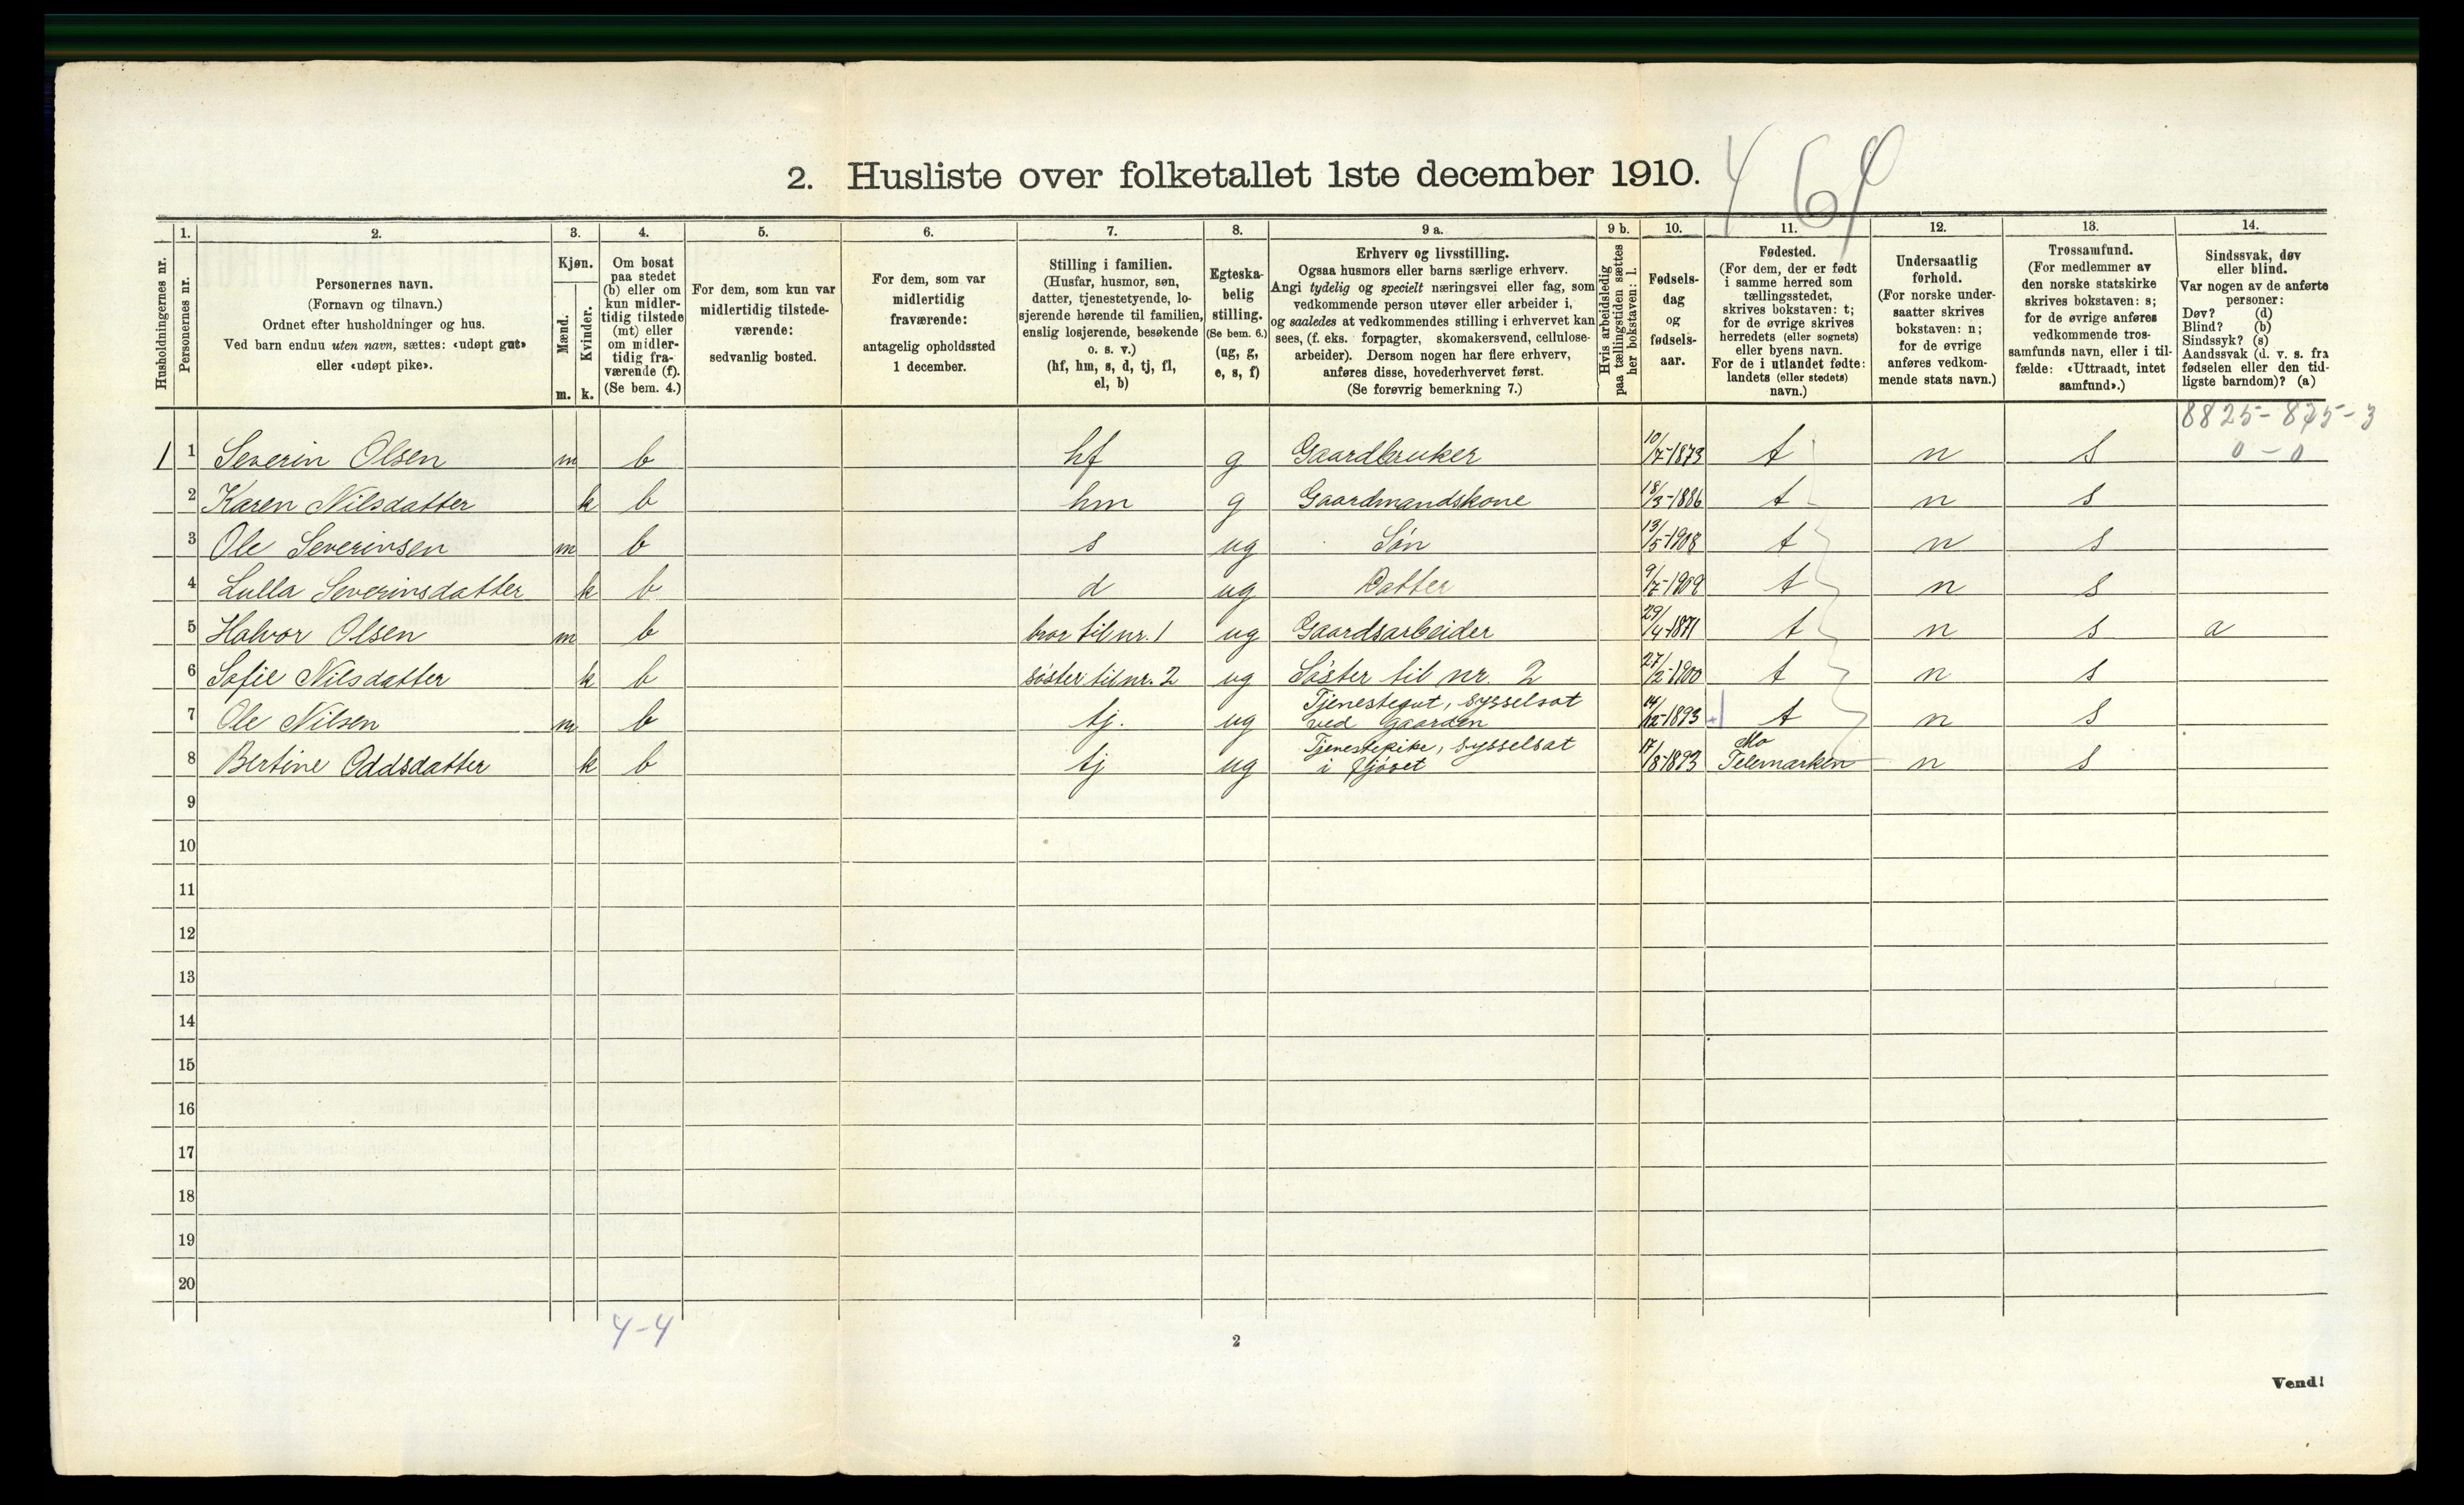 2. Husliste over folketallet 1ste december 1910.
Husholdningernes nr.
1.
Personernes nr.
2.
Personernes navn.
(Fornavn og tilnavn.)
Ordnet efter husholdninger og hus.
Ved barn endnu uten navn, sættes: «udøpt gut»
eller «udøpt pike».
3.
Kjøn.
Mænd.
Kvinder.
m. k.
4.
Om bosat
paa stedet
(b) eller om
kun midler-
tidig tilstede
(mt) eller
om midler-
tidig fra-
værende (f).
(Se bem. 4.)
5.
For dem, som kun var
midlertidig tilstede-
værende:
sedvanlig bosted.
6.
For dem, som var
midlertidig
fraværende:
antagelig opholdssted
1 december.
7.
Stilling i familien.
(Husfar, husmor, søn,
datter, tjenestetyende, lo-
sjerende hørende til familien,
enslig losjerende, besøkende
o. s. v.)
(hf, hm, s, d, tj, fl,
el, b)
8.
Egteska-
belig
stilling.
(Se bem. 6.)
(ug, g,
e, s, f)
9 a.
Erhverv og livsstilling.
Ogsaa husmors eller barns særlige erhverv.
Angi tydelig og specielt næringsvei eller fag, som
vedkommende person utøver eller arbeider i,
og saaledes at vedkommendes stilling i erhvervet kan
sees, (f. eks. forpagter, skomakersvend, cellulose-
arbeider). Dersom nogen har flere erhverv,
anføres disse, hovederhvervet først.
(Se forøvrig bemerkning 7.)
9 b.
Hvis arbeidsledig
paa tællingstiden sættes
her bokstaven: l.
10.
Fødsels-
dag
og
fødsels-
aar.
11.
Fødested.
(For dem, der er født
i samme herred som
tællingsstedet,
skrives bokstaven: t;
for de øvrige skrives
herredets (eller sognets)
eller byens navn.
For de i utlandet fødte:
landets (eller stedets)
navn.)
12.
Undersaatlig
forhold.
(For norske under-
saatter skrives
bokstaven: n;
for de øvrige
anføres vedkom-
mende stats navn.)
13.
Trossamfund.
(For medlemmer av
den norske statskirke
skrives bokstaven: s;
for de øvrige anføres
vedkommende tros-
samfunds navn, eller i til-
fælde: «Uttraadt, intet
samfund».)
14.
Sindssvak, døv
eller blind.
Var nogen av de anførte
personer:
Døv? (d)
Blind? (b)
Sindssyk? (s)
Aandssvak (d. v. s. fra
fødselen eller den tid-
ligste barndom)? (a)
1 1 Severin Olsen m b hf g Gaardbruker 10/7-1873 t n s 0 - 0
2 Karen Nilsdatter k b hm g Gaardmandskone 18/3-1886 t n s
3 Ole Severinsen m b s ug Søn 13/5-1908 t n s
4 Lulla Severinsdatter k b d ug Datter 9/7-1909 t n s
5 Halvor Olsen m b bror til nr. 1 ug Gaardsarbeider 29/4-1871 t n s a
6 Sofie Nilsdatter k b søster til nr. 2 ug Søster til nr. 2 27/2-1900 t n s
7 Ole Nilsen m b tj. ug Tjenestegut, sysselsat
ved gaarden 14/12-1893 t n s
8 Bertine Oddsdatter k b tj ug Tjenestepike, sysselsat
i fjøset 17/8-1893 Mo
Telemarken n s
9
10
11
12
13
14
15
16
17
18
19
20
4-4
2
Vend!